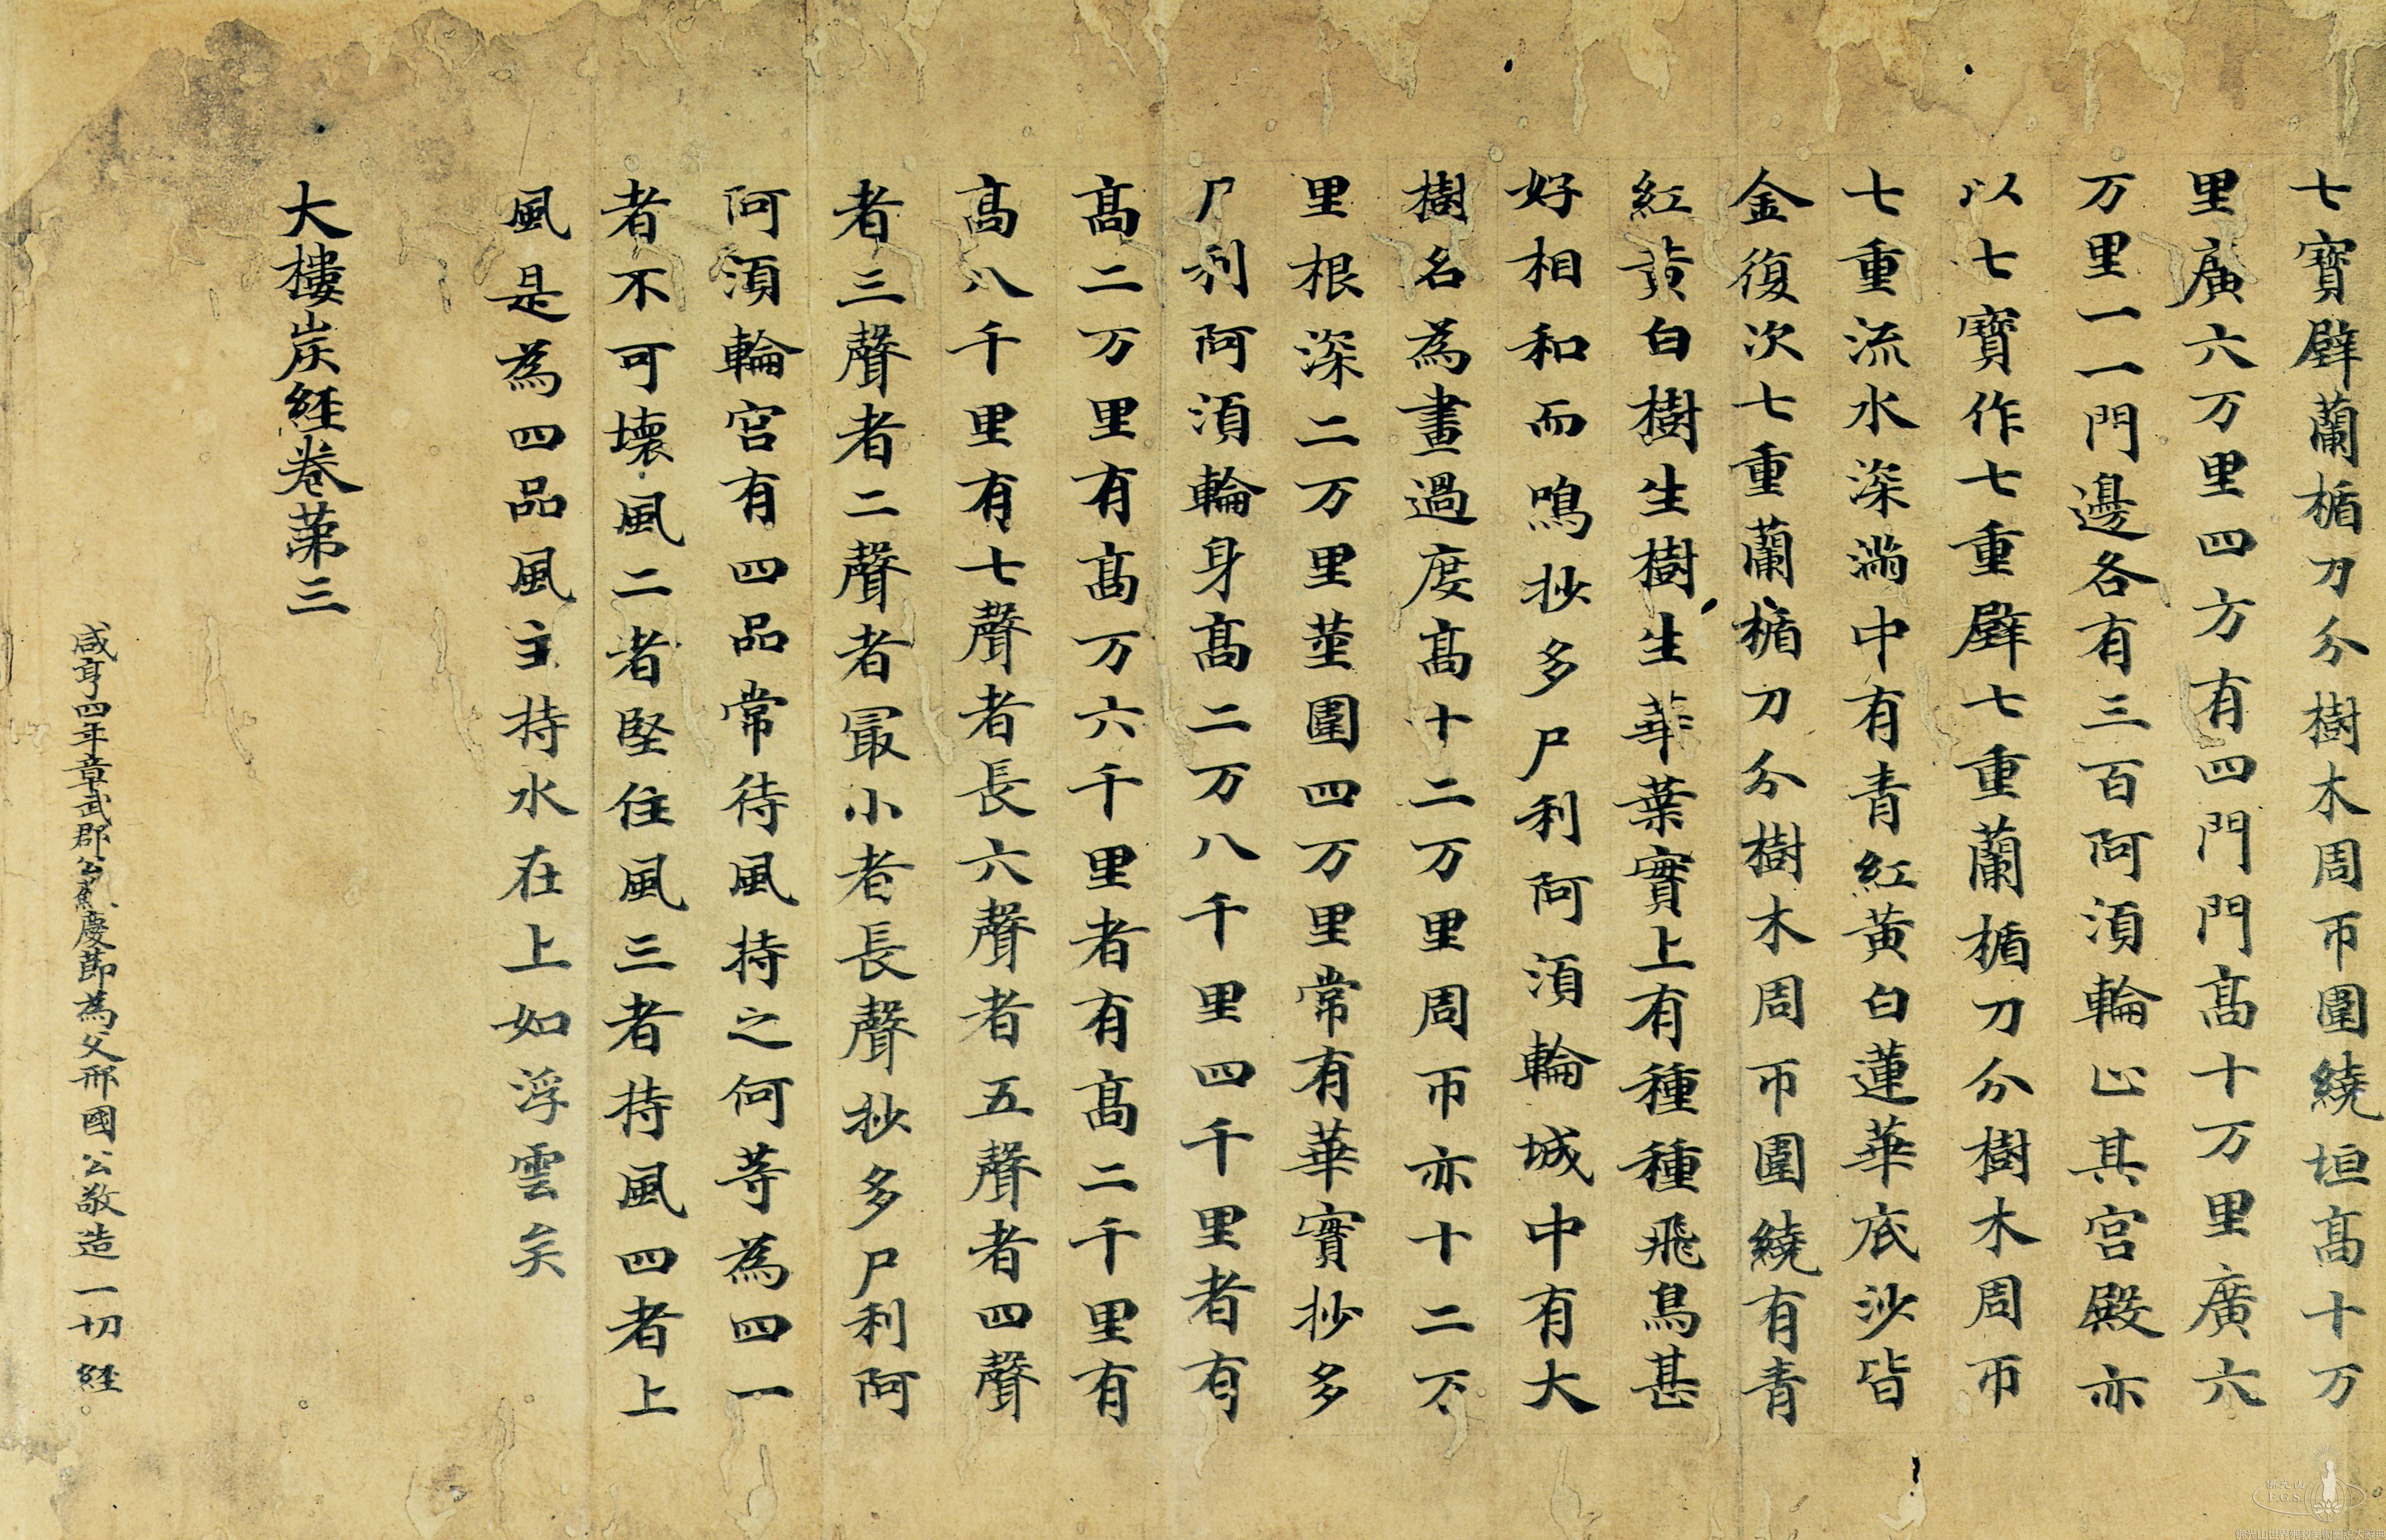 七寶壁蘭楯刀分樹木周帀圍繞垣髙十万
里廣六万里四方有四門門髙十万里廣六
万里一一門邊各有三百阿湏輪止其宮殿亦
以七寶作七重壁七重蘭楯刀分樹木周帀
七重流水深滿中有青紅黃白蓮華底沙皆
金復次七重蘭楯刀分樹木周帀圍繞有青
紅黃白樹生生樹生華葉實上有種種飛鳥甚
好相和而鳴抄多尸利阿湏輪城中有大
樹名為晝過度髙十二万里周帀亦十二万
里根深二万里莖圍四万里常有華實抄多
尸利阿湏輪身髙二万八千里四千里者有
髙二万里有髙万六千里者有髙二千里有
髙八千里有七聲者長六聲者五聲者四聲
者三聲者二聲者冣小者長聲抄多尸利阿
阿湏輪宮有四品常待風持之何等為四一
者不可壞風二者堅住風三者持風四者上
風是為四品風主持水在上如浮雲矣
大樓炭経卷第三
咸亨四年章武郡公蘇慶節為父邢國公敬造一切経
F.G.S.